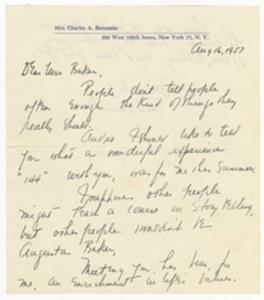 Mrs. Charles A. Bernstein
300 West 108th Street, New York 25, N. Y.
Aug 16, 1953
Dear Miss Baker,
People don't tell people
often enough the kind of things they
really should.
And so I should like to tell
you what a wonderful experience
"144" with you, was for me this Summer.
other people
might teach a course in Story Telling,
but other people wouldn't be
Augusta Baker.
Meeting you, has been, for
me, an Enrichment in life's values.